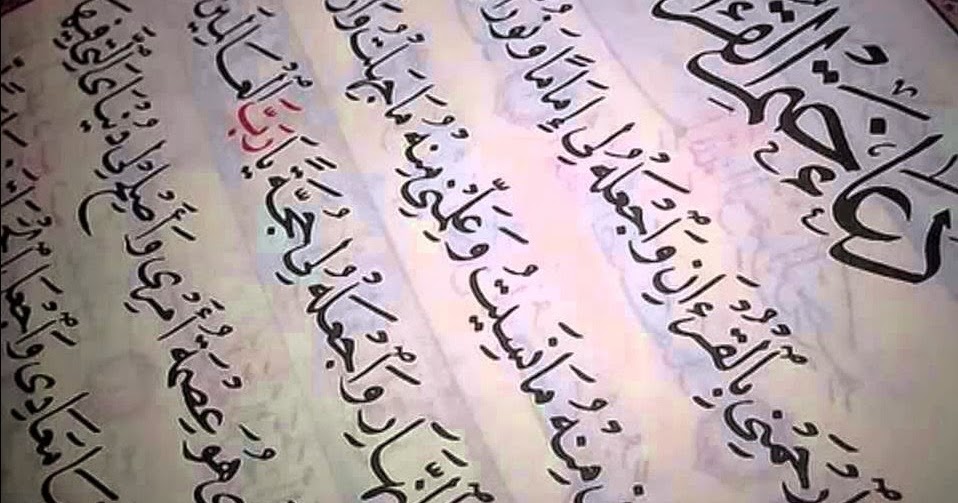 دُعَاءُ خَتْمِ الْقُرْءَا
رْحَمْنِى بِالْقُرْءَانِ وَاجْعَلْهُ لِى إِمَامًا وَنُورًا
مِنْهُ مَا نَسِيتُ وَعَلِّمْنِى مِنْهُ مَا جَهِلْتُ وَا
النَّهَارِ وَاجْعَلْهُ لِى حُجَّةً يَا رَبَّ الْعَالَمِينَ
هُوَ عِصْمَةُ أَمْرِى وَأَصْلِحْ لِى دُنْيَاىَ الَّتِى فِيهَا
مَعَادِى وَاجْعَلِ